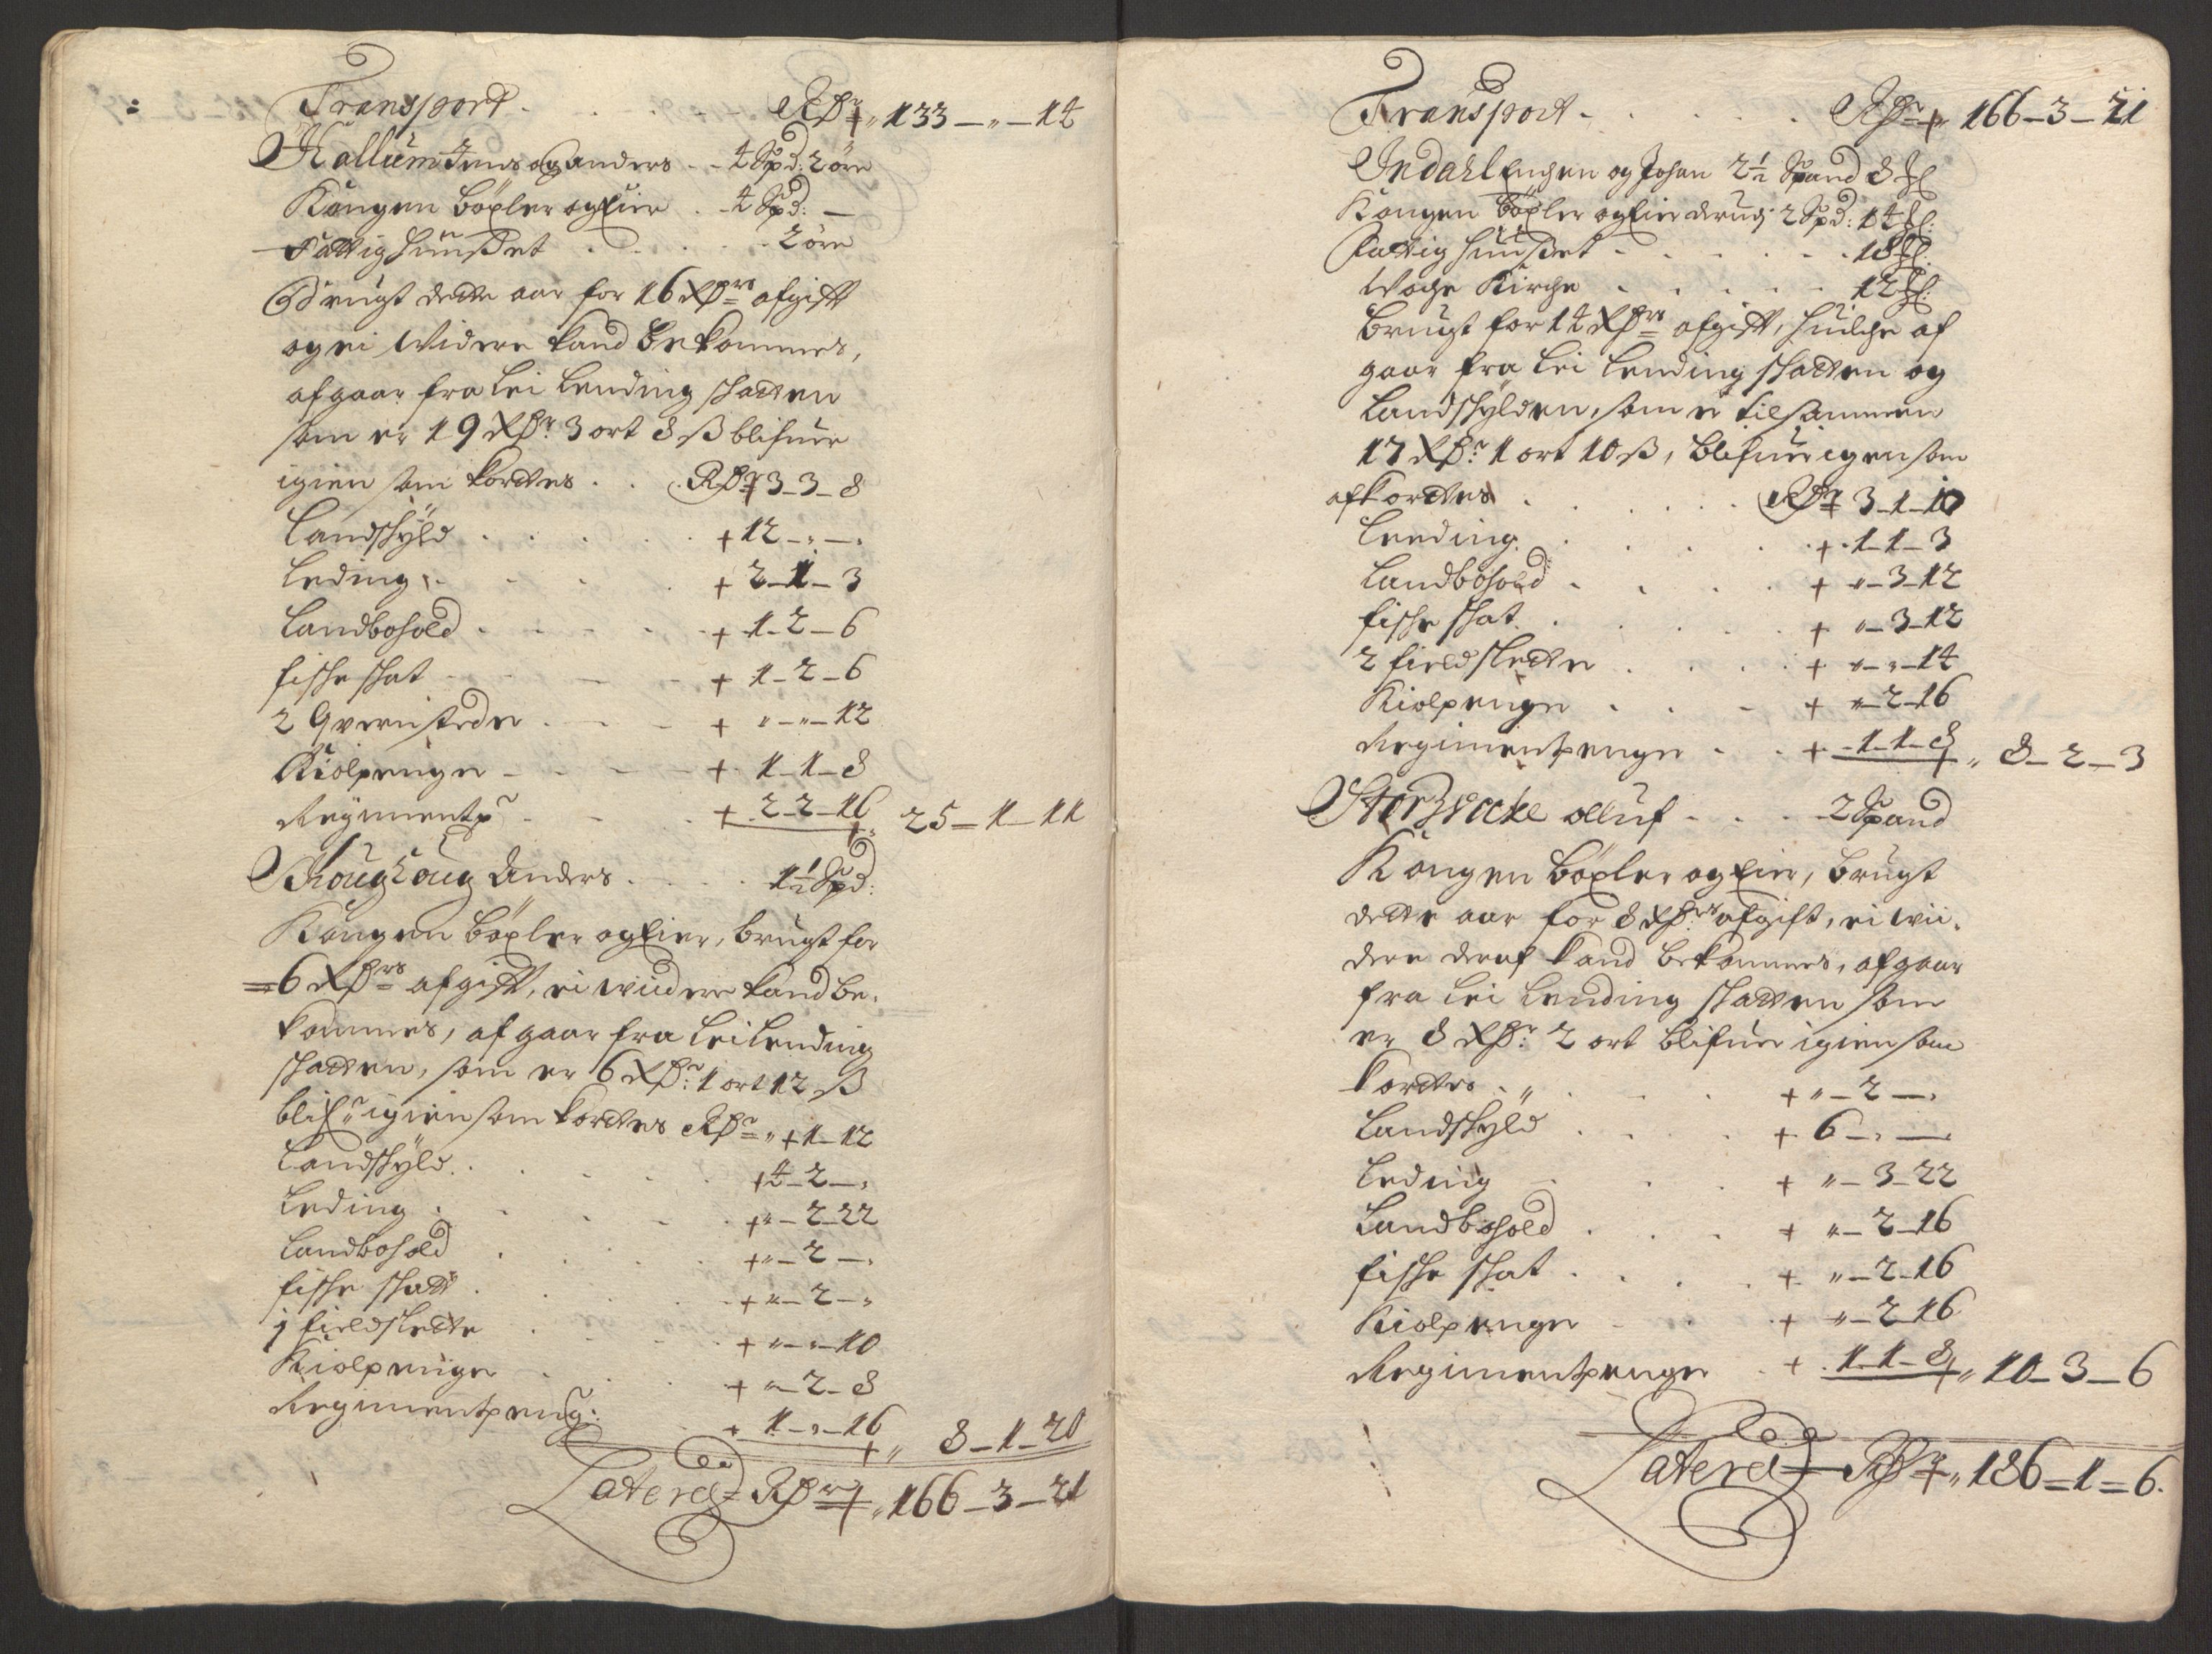 Transport . . . . Rdr 133 – " – 14
Kallum Jens og Anders . . 4 Spd: 2 øre
Kongen böxler og Eier . 4 Spd: –
Fattighuußet . . . . 2 øre
Brugt dette aar for 16 Rdrs afgift
og ei Widere kand bekommes,
afgaar fra Leilending skatten
som er 19 Rdr: 3 ort 8 ß blifuer
igien som kortes . . Rdr 3 – 3 – 8
Landskyld . . . . + 12 – " – "
Leding . . . . + 2 – 1 – 3
Landbohold . . . . + 1 – 2 – 6
fiske skat . . . . + 1 – 2 – 6
2 Qvernstede . . . + " – " – 12
Kiölpenge . . . . + 1 – 1 – 8
Regimentp . . . . + 2 – 2 – 16 25 – 1 – 11
Skoug Anders . . . . 1½ Spd:
Kongen böxler og Eier, brugt for
6 Rdrs afgift, ei wiidere kand be-
kommes, afgaar fra Leilending
skatten, som er 6 Rdr: 1 ort 12 ß
blifr igien som kortes Rdr " + 1 – 12
Landskyld . . . . + 4 – 2 – "
Leding . . . . + " – 2 – 22
Landbohold . . . . + " – 2 – "
fiske skatt . . . . + " – 2 – "
1 fieldslette . . . + " – " – 10
Kiölpenge . . . . + " – 2 – 8
Regimentpeng: . . + 1 – " – 16 " 8 – 1 – 20
Latere Rdr " 166 – 3 – 21
Transport . . . . . Rdr 166 – 3 – 21
Indahl Engen og Johan 2½ Spand 8 ℔
Kongen böxler og Eier deruj 2 Spd: 14 ℔:
Fattighuußet . . . . . 18 ℔.
Woge Kirche . . . . 12 ℔:
Brugt for 14 Rdrs afgift, huilche af
gaar fra Leilending skatten og
Landskylden, som er tilsammen
17 Rdr: 1 ort 10 ß, blifuer igen som
afkortes . . . . Rdr 3 – 1 – 10
Leeding . . . . + 1 – 1 – 3
Landbohold . . . . + " – 3 – 12
fiske skat . . . . + " – 3 – 12
2 fieldslette . . . + " – " – 14
Kiölpenge . . . + " – 2 – 16
Regimentpenge . . + 1 – 1 – 8 " 8 – 2 – 3
Olluf . . . 2 Spand
Kongen böxler og Eier, brugt
dette aar for 8 Rdrs afgift, ei wii-
dere deraf kand bekommes, afgaar
fra Leilending skatten som
er 8 Rdr: 2 ort blifuer igien som
kortes . " . . . + " – 2 – "
Landskyld . . . . + 6 – " –
Leding . . . + " – 3 – 22
Landbohold . . . + " – 2 – 16
fiske skat . . . . + " – 2 – 16
Kiölpenge . . . + " – 2 – 16
Regimentpenge . + 1 – 1 – 8 " 10 – 3 – 6
Latere Rdr " 186 = 1 = 6.